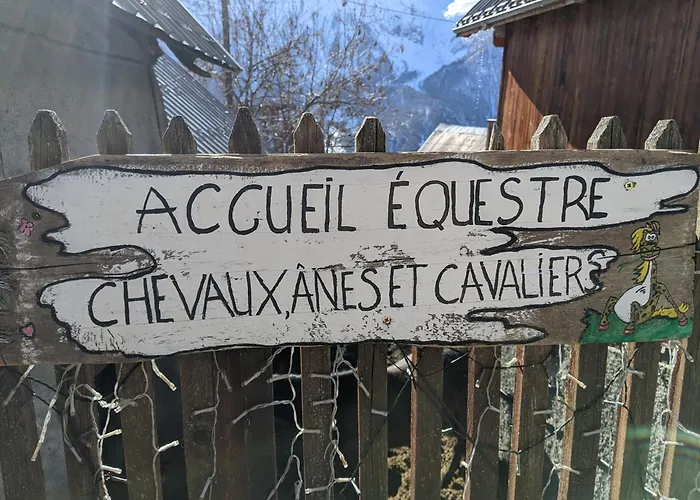 ACCUEIL ÉQUESTRE
CHEVAUX, ÂNES ET CAVALIERS